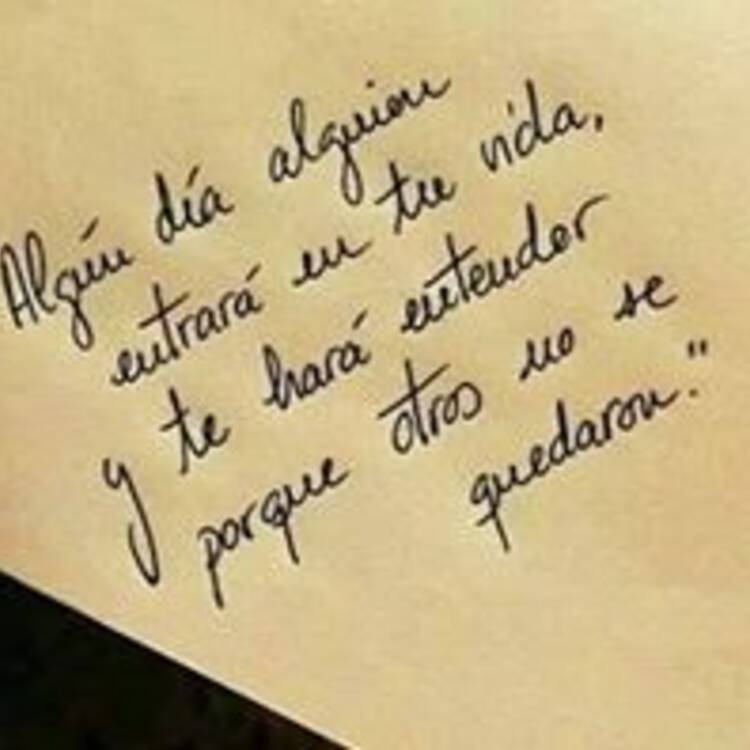 Algún día alguien
entrará en tu vida,
y te hará entender
porque otros no se
quedaron."